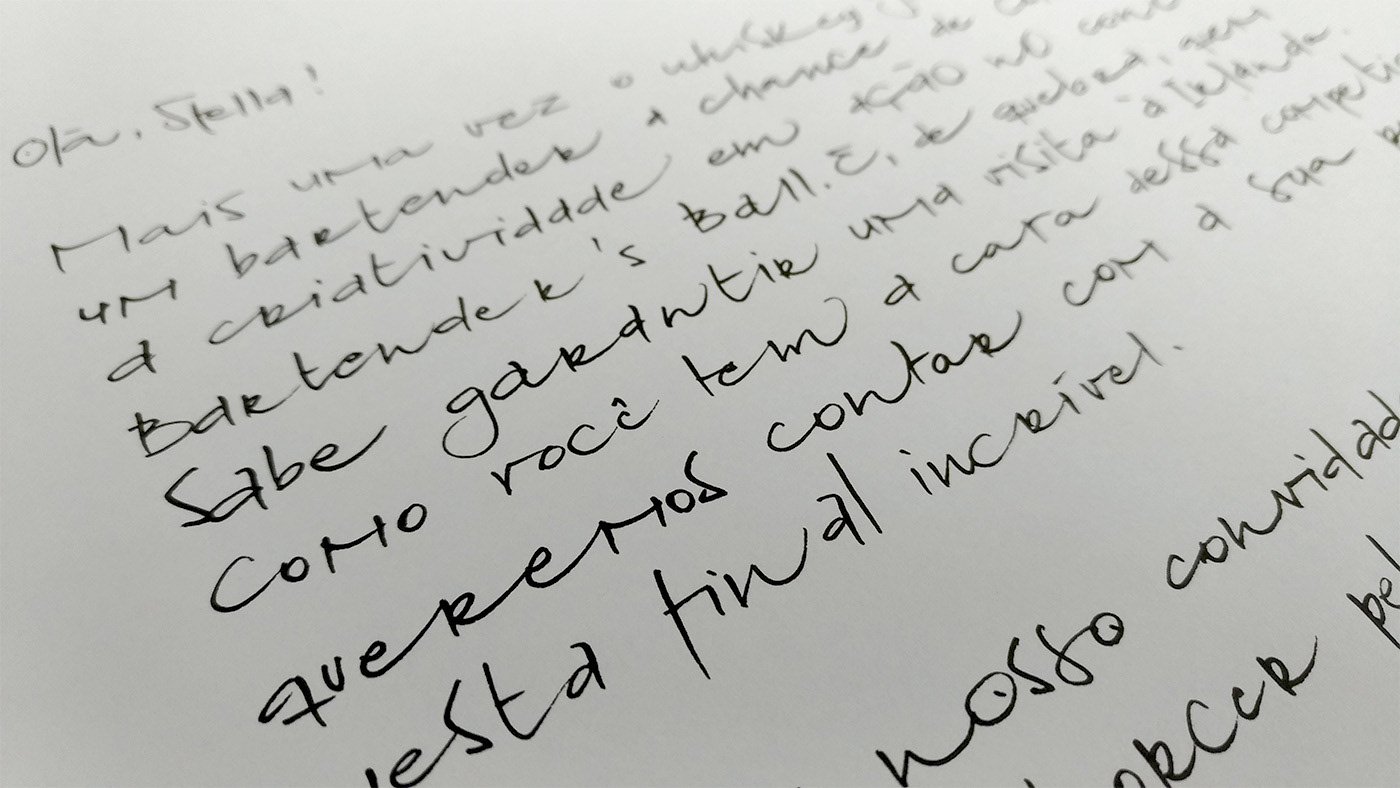 Olá, Stella!
Mais uma vez o whiskey
um bartender a chance de
a criatividade em ação no
Bartender's Ball. E, de quebra, quem
sabe garantir uma visita à Irlanda.
Como você tem a cara dessa
queremos contar com a sua
nesta final incrível.
nosso